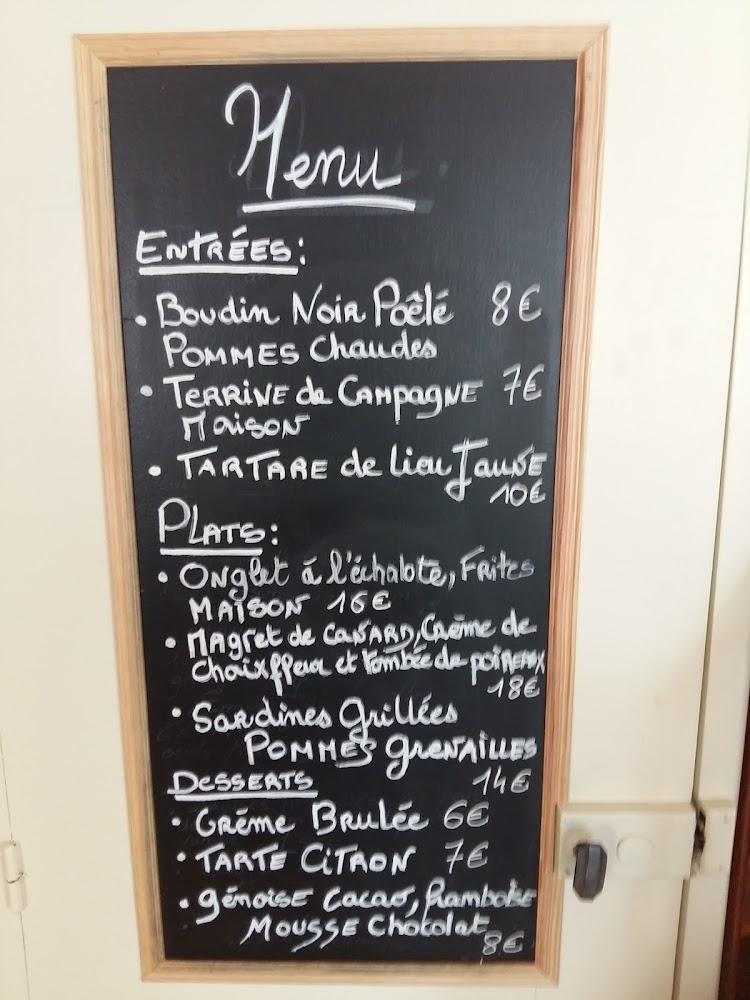 Menu
ENTRÉES:
• Boudin Noir Poêlé 8€
POMMES Chaudes
• TERRINE de CAMPAGNE 7€
MAISON
• TARTARE de Lieu JAUNE
10€
PLATS:
• Onglet à l'échalote, Frites
MAISON 16€
• Magret de CANARD, Crème de
Chouxffleur et tombée de poireaux
18€
• Sardines Grillées
POMMES GRENAILLES
14€
DESSERTS
• Crème Brulée 6€
• TARTE CITRON 7€
• génoise Cacao, framboise
MOUSSE Chocolat
8€